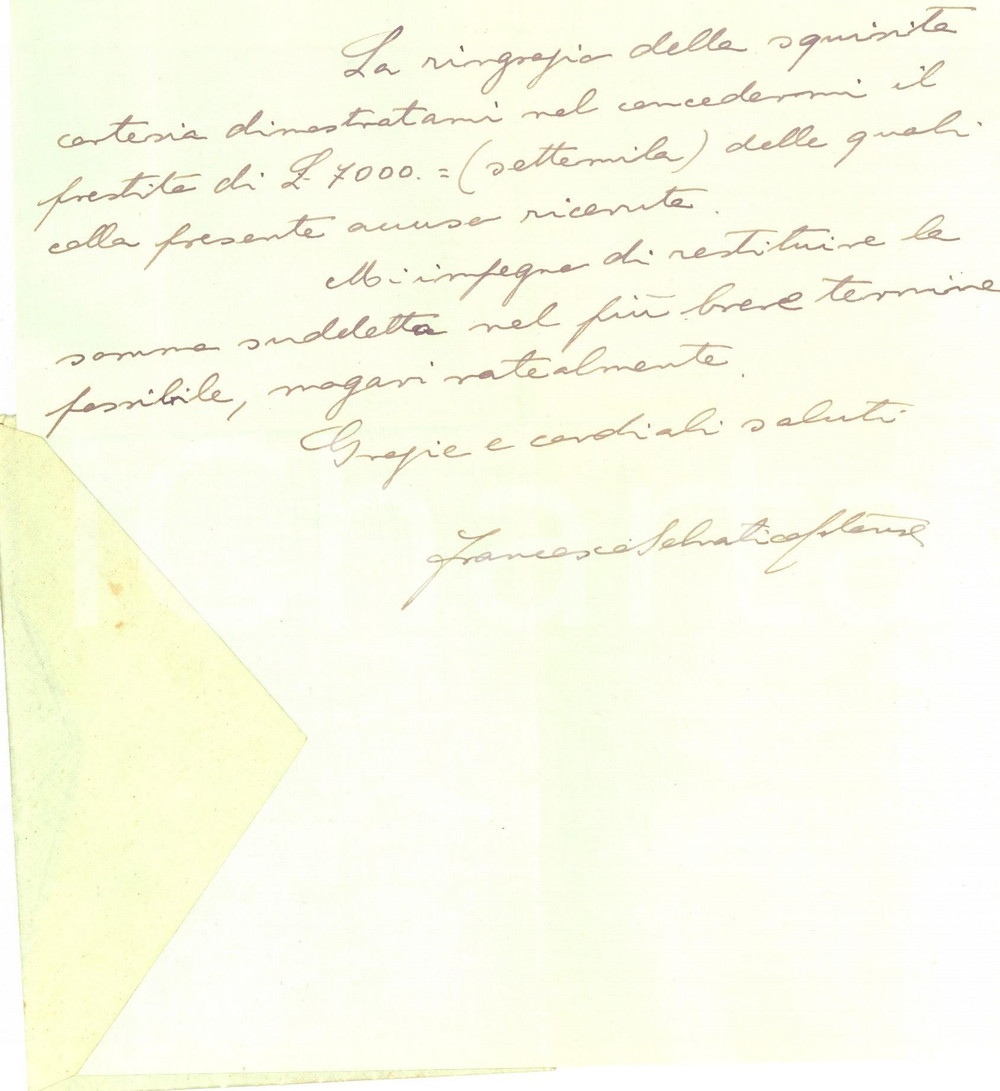 La ringrazio della squisita
cortesia dimostratami nel concedermi il
prestito di £ 7000.= (settemila) delle quali
colla presente accuso ricevuta.
Mi impegno di restituire la
somma suddetta nel più breve termine
possibile, magari ratealmente.
Grazie e cordiali saluti
Francesco Selvatico Estense